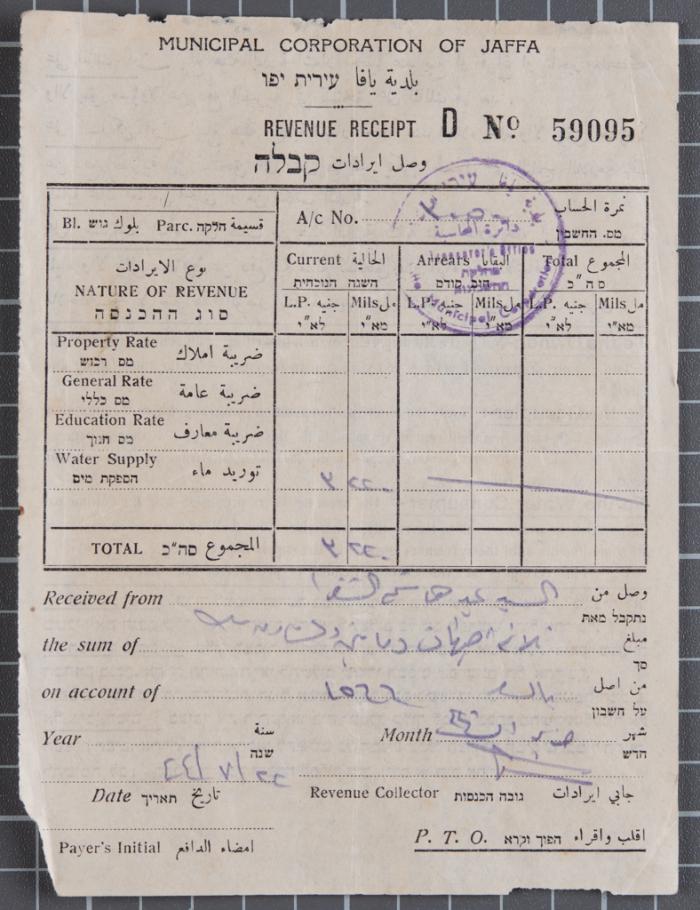 MUNICIPAL CORPORATION OF JAFFA
بلدية يافا עירית יפו
REVENUE RECEIPT D Nº 59095
وصل ايرادات קבלה
Bl. بلوك גוש Parc. قسيمة חלקה
A/c No. نمرة الحساب
מס. החשבון
نوع الايرادات
NATURE OF REVENUE
סוג ההכנסה
Current الحالية
השנה הנוכחית
Arrears البقايا
חוב קודם
Total المجموع
סה"כ
L.P. جنيه Mils مل L.P. جنيه Mils مل L.P. جنيه Mils مل
לא"י מא"י לא"י מא"י לא"י מא"י
Property Rate ضريبة املاك
מס רכוש
General Rate ضريبة عامة
מס כללי
Education Rate ضريبة معارف
מס חנוך
Water Supply توريد ماء
הספקת מים
٣ ٢٢٠
TOTAL סה"כ المجموع ٣ ٢٢٠
Received from السيد وصل من
נתקבל מאת
the sum of مبلغ
סך
on account of من اصل
על חשבון
Year سنة Month شهر
שנה חדש
٤٤/٧/٢٢
Date תאריך تاريخ Revenue Collector גובה הכנסות جابي ايرادات
Payer's Initial امضاء الدافع P. T. O. הפוך וקרא اقلب واقراء